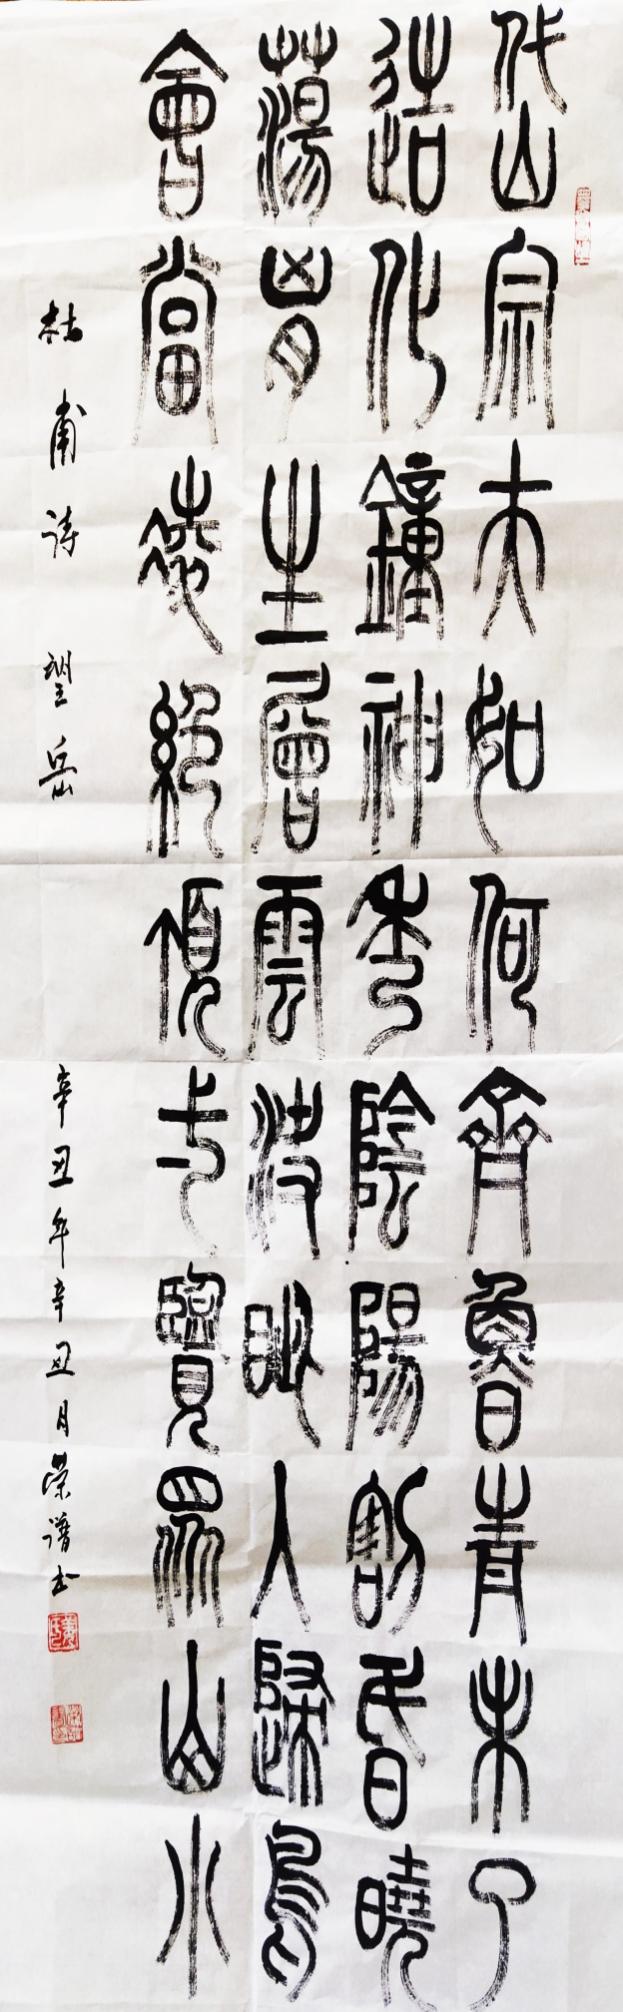 岱宗夫如何齊魯青未了
造化鐘神秀陰陽割昏曉
蕩胷生層雲決眦入歸鳥
會當凌絕頂一覽眾山小
杜甫诗 望岳 辛丑年辛丑月荣谱书